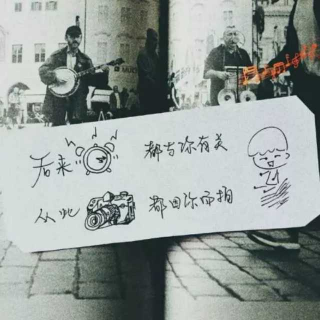 后来 都与你有关
从此 都由你而拍